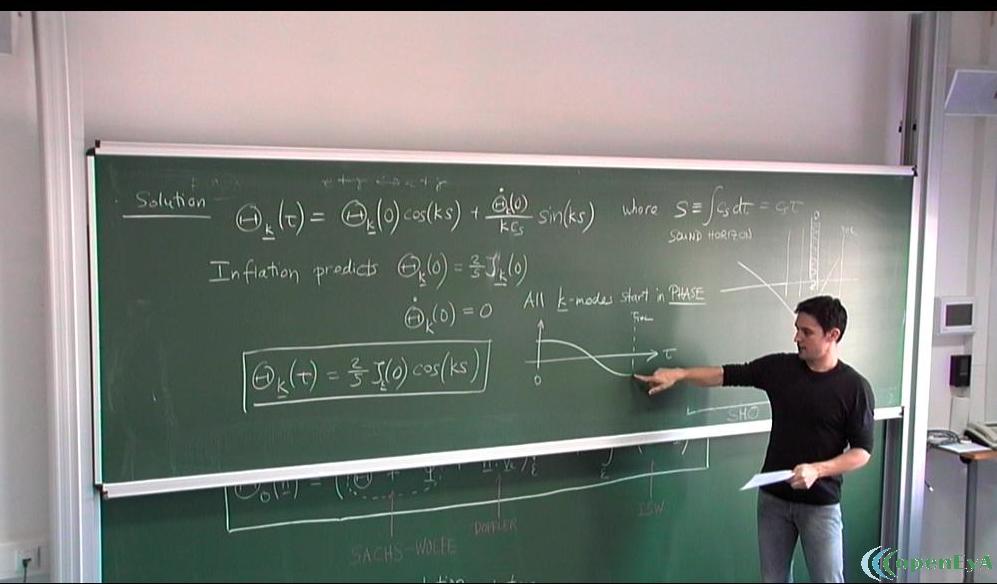 Solution
Θ_k(τ) = Θ_k(0) cos(ks) + Θ̇_k(0)/kc_s sin(ks) where S ≡ ∫c_s dτ = c_sτ
SOUND HORIZON
Inflation predicts Θ_k(0) = 2/5 ζ_k(0)
Θ̇_k(0) = 0
All k-modes start in PHASE
Θ_k(τ) = 2/5 ζ_k(0) cos(ks)
τ
0
SHO
SACHS-WOLFE
DOPPLER
ISW
openEyA